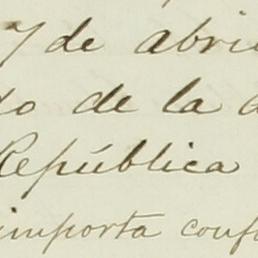 7 de abri
do de la a
República
importa conf